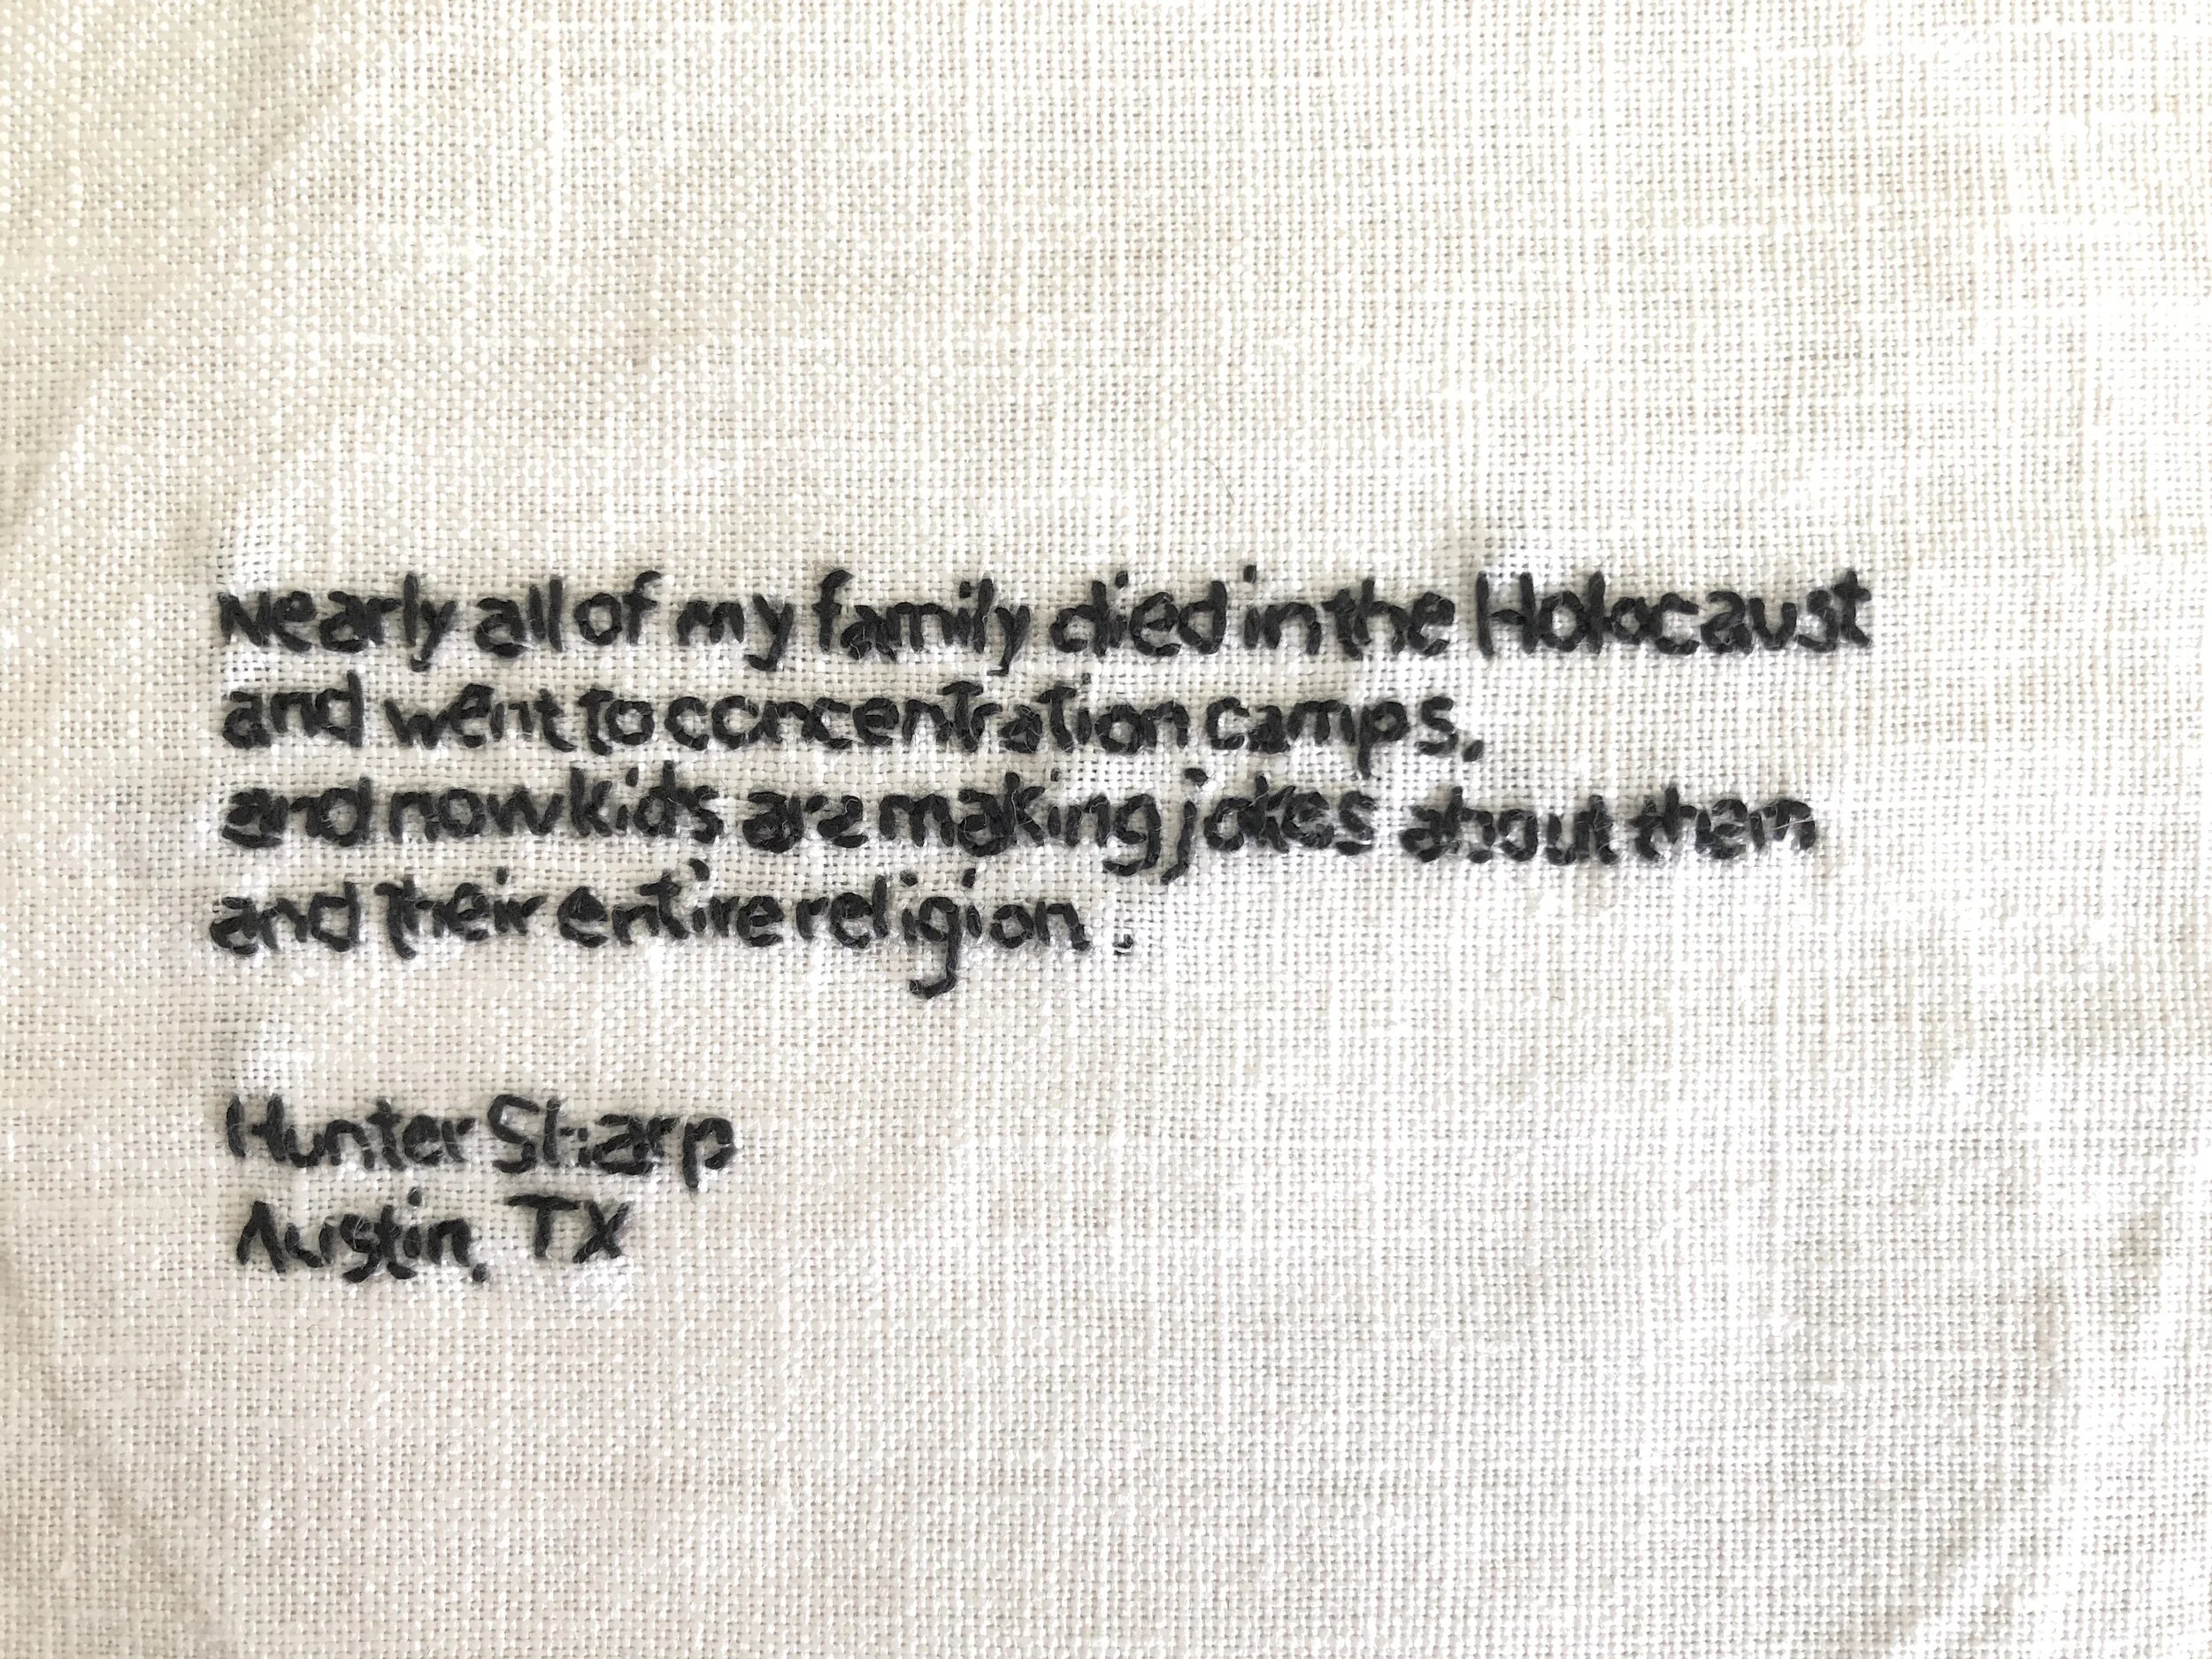 Nearly all of my family died in the Holocaust
and went to concentration camps,
and now kids are making jokes about them
and their entire religion.
Hunter Sharp
Austin, TX